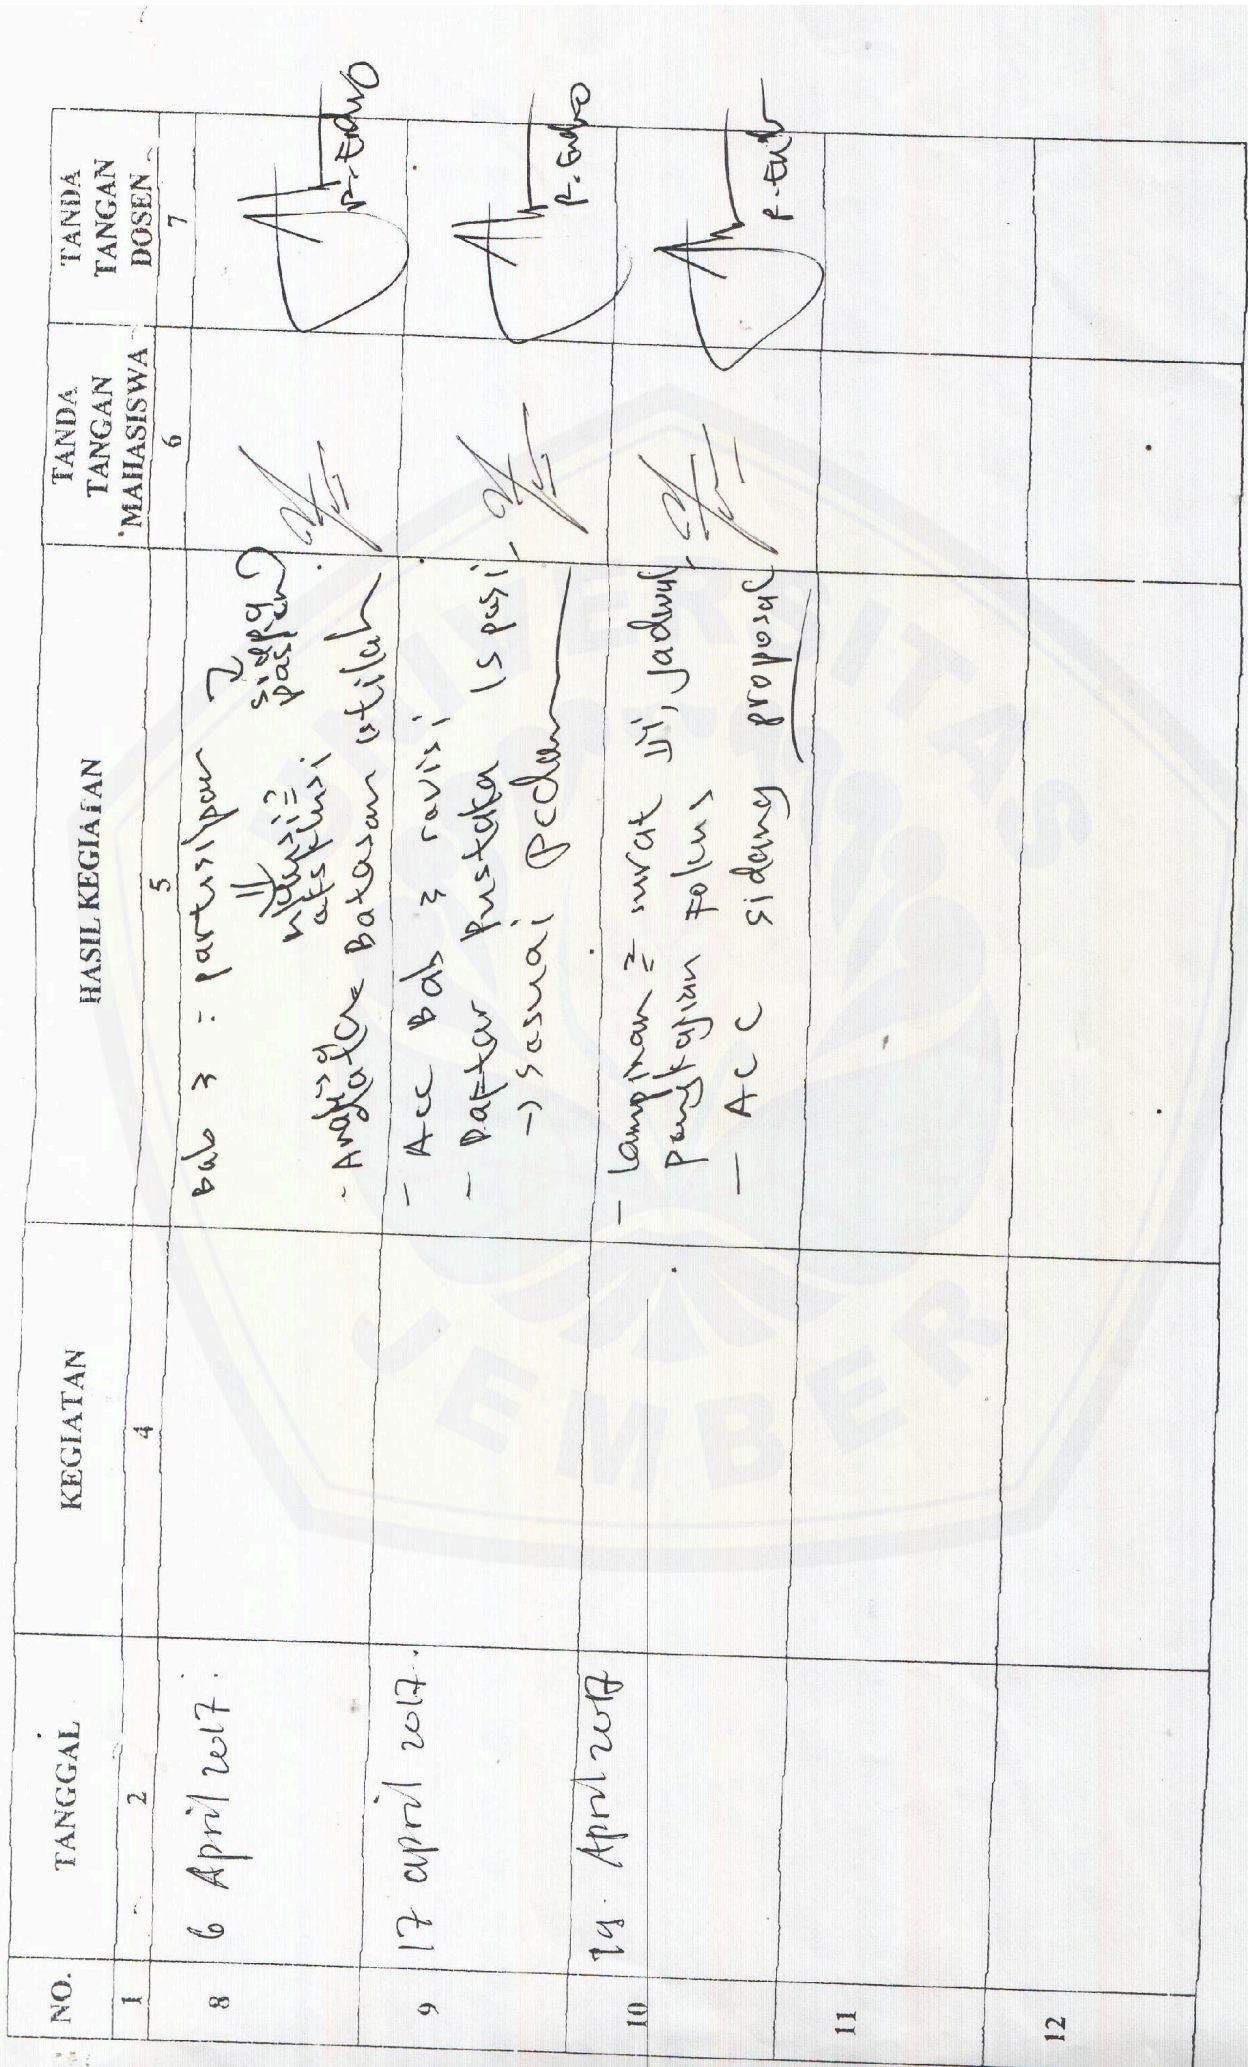 NO.
TANGGAL
KEGIATAN
HASIL KEGIATAN
TANDA
TANGAN
MAHASISWA
TANDA
TANGAN
DOSEN
1
2
4
5
6
7
8
6 April 2017.
Bab 3 : partisipan
siapa
pasien
- Batasan istilah
P. Endro
9
17 april 2017.
- Acc Bab 3 revisi
- Daftar Pustaka
-> sesuai
P. Endro
10
19. April 2017
- lampiran = surat Jadwal,
pengkajian Fokus
- ACC sidang proposal
P. Endro
11
12
UNIVERSITAS
JEMBER